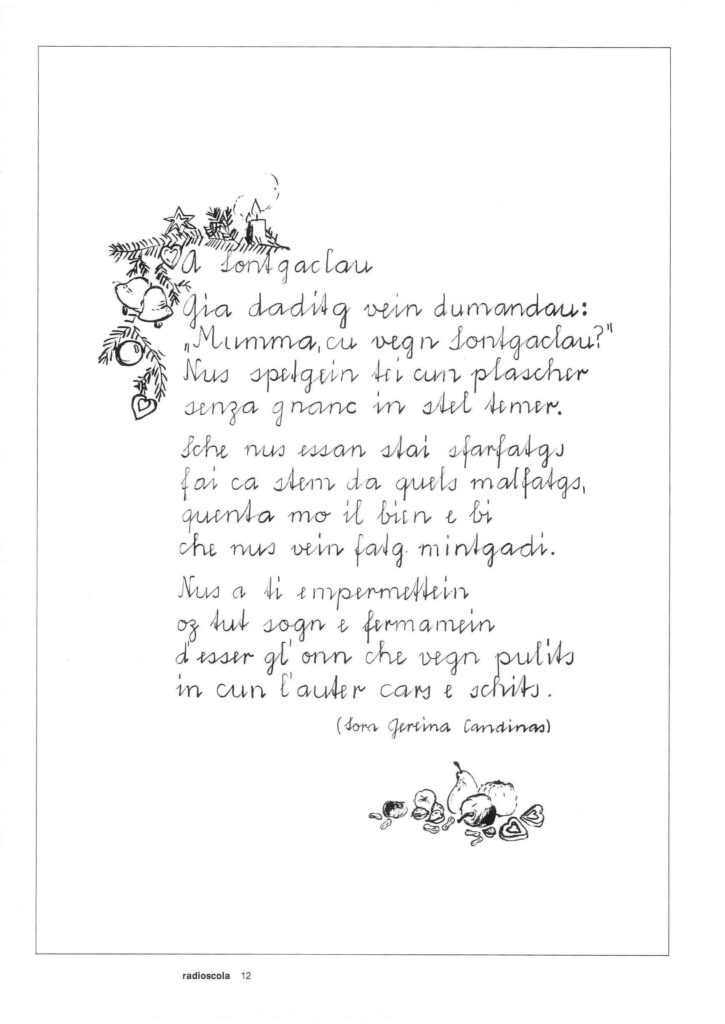 A Sontgaclau
Gia daditg vein dumandau:
„Mumma, cu vegn Sontgaclau?"
Nus spetgein tei cun plascher
senza gnanc in stel temer.
Sche nus essan stai sfarfatgs
fai ca stem da quels malfatgs,
quenta mo il bien e bi
che nus vein fatg mintgadi.
Nus a ti empermettein
oz tut sogn e fermamein
d'esser gl'onn che vegn pulits
in cun l'auter cars e schits.
(Sora Gereina Candinas)
radioscola 12